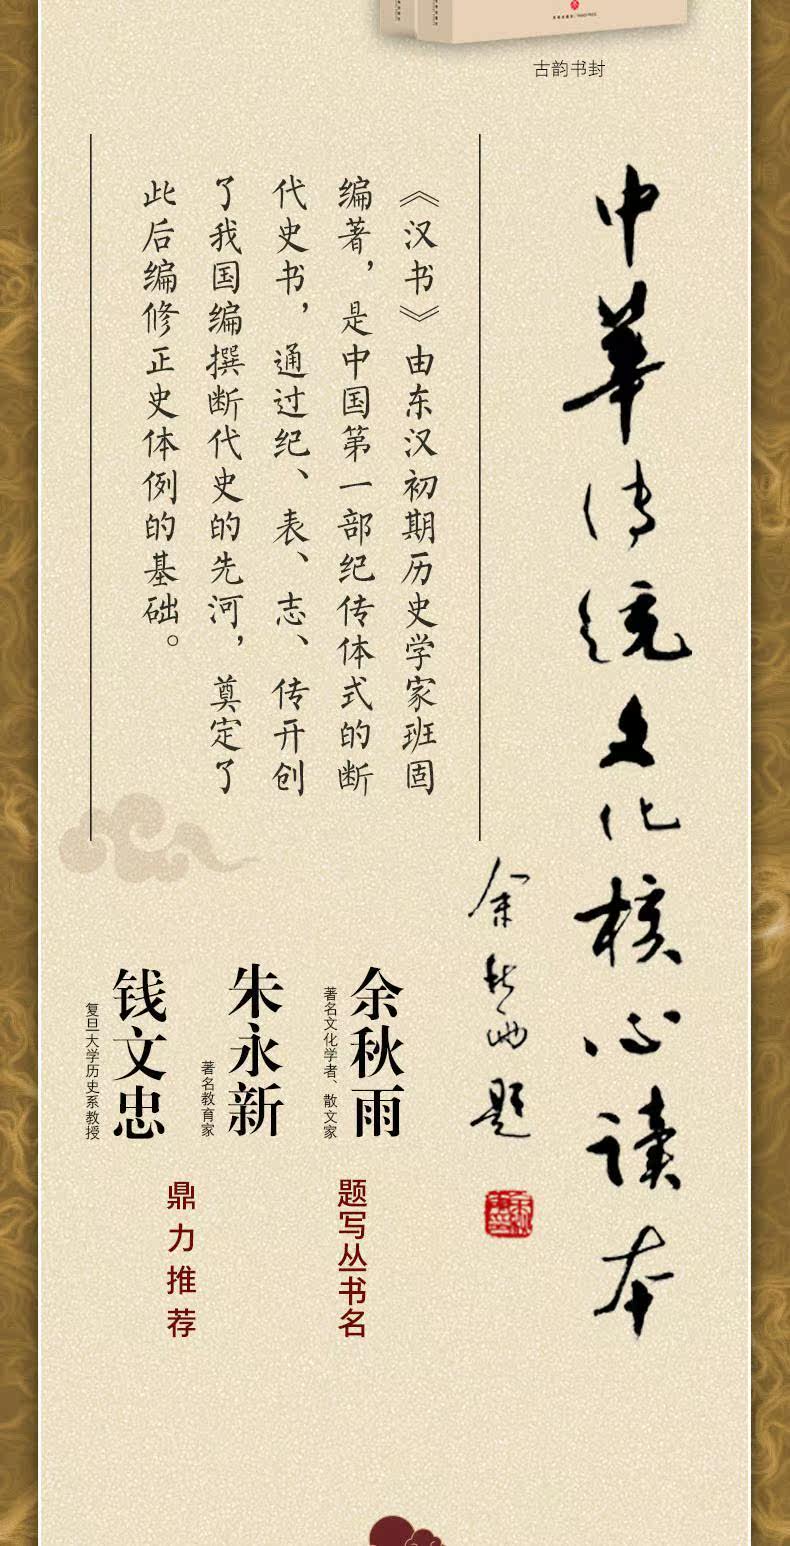 古韵书封
中華传统文化核心读本
余秋雨题
《汉书》由东汉初期历史学家班固
编著，是中国第一部纪传体式的断
代史书，通过纪、表、志、传开创
了我国编撰断代史的先河，奠定了
此后编修正史体例的基础。
余秋雨
著名文化学者、散文家
题写丛书名
朱永新
著名教育家
钱文忠
复旦大学历史系教授
鼎力推荐